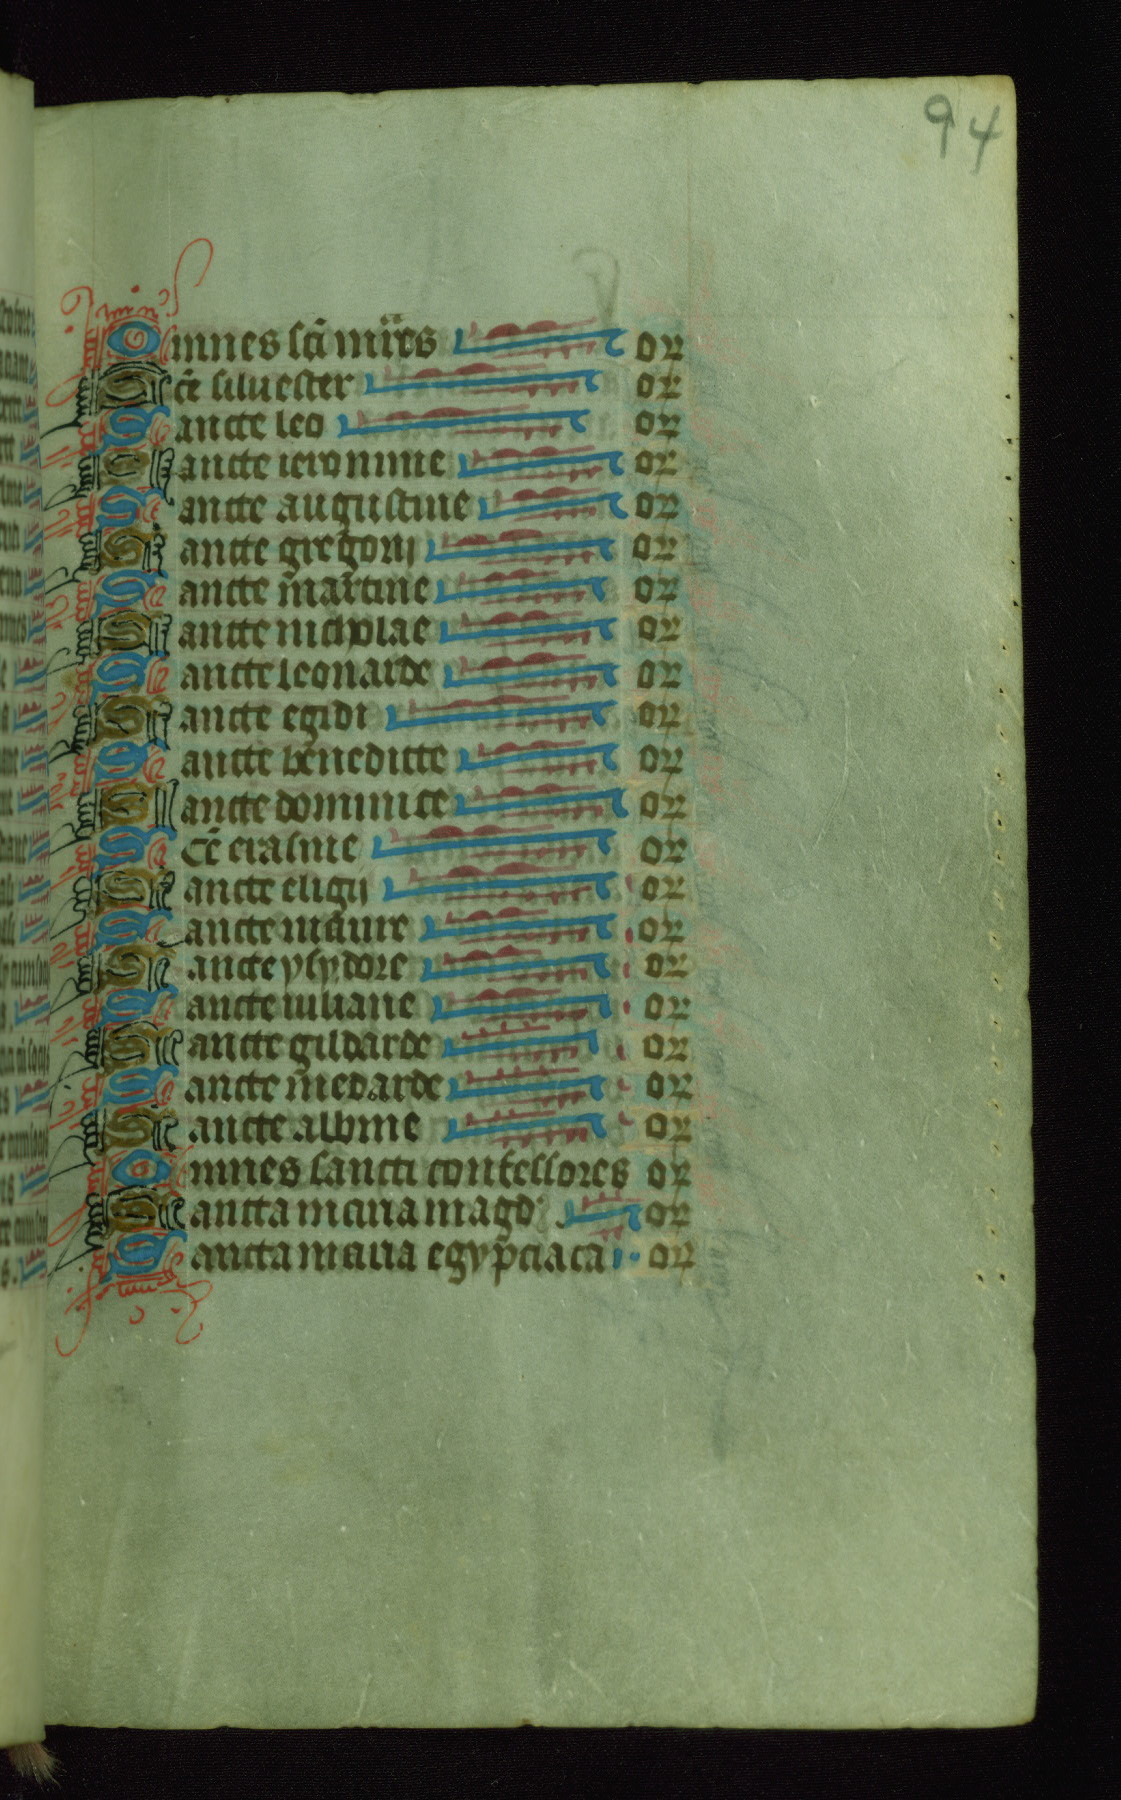 94
Omnes sc̄i mr̄es or
Sc̄e siluester or
Sancte leo or
Sancte ieronime or
Sancte augustine or
Sancte gregorij or
Sancte martine or
Sancte nicholae or
Sancte leonarde or
Sancte egidi or
Sancte benedicte or
Sancte dominice or
Sc̄e erasme or
Sancte eligij or
Sancte maure or
Sancte ysydore or
Sancte iuliane or
Sancte gildarde or
Sancte medarde or
Sancte albine or
Omnes sancti confessores or
Sancta maria magd or
Sancta maria egyp̄ciaca or